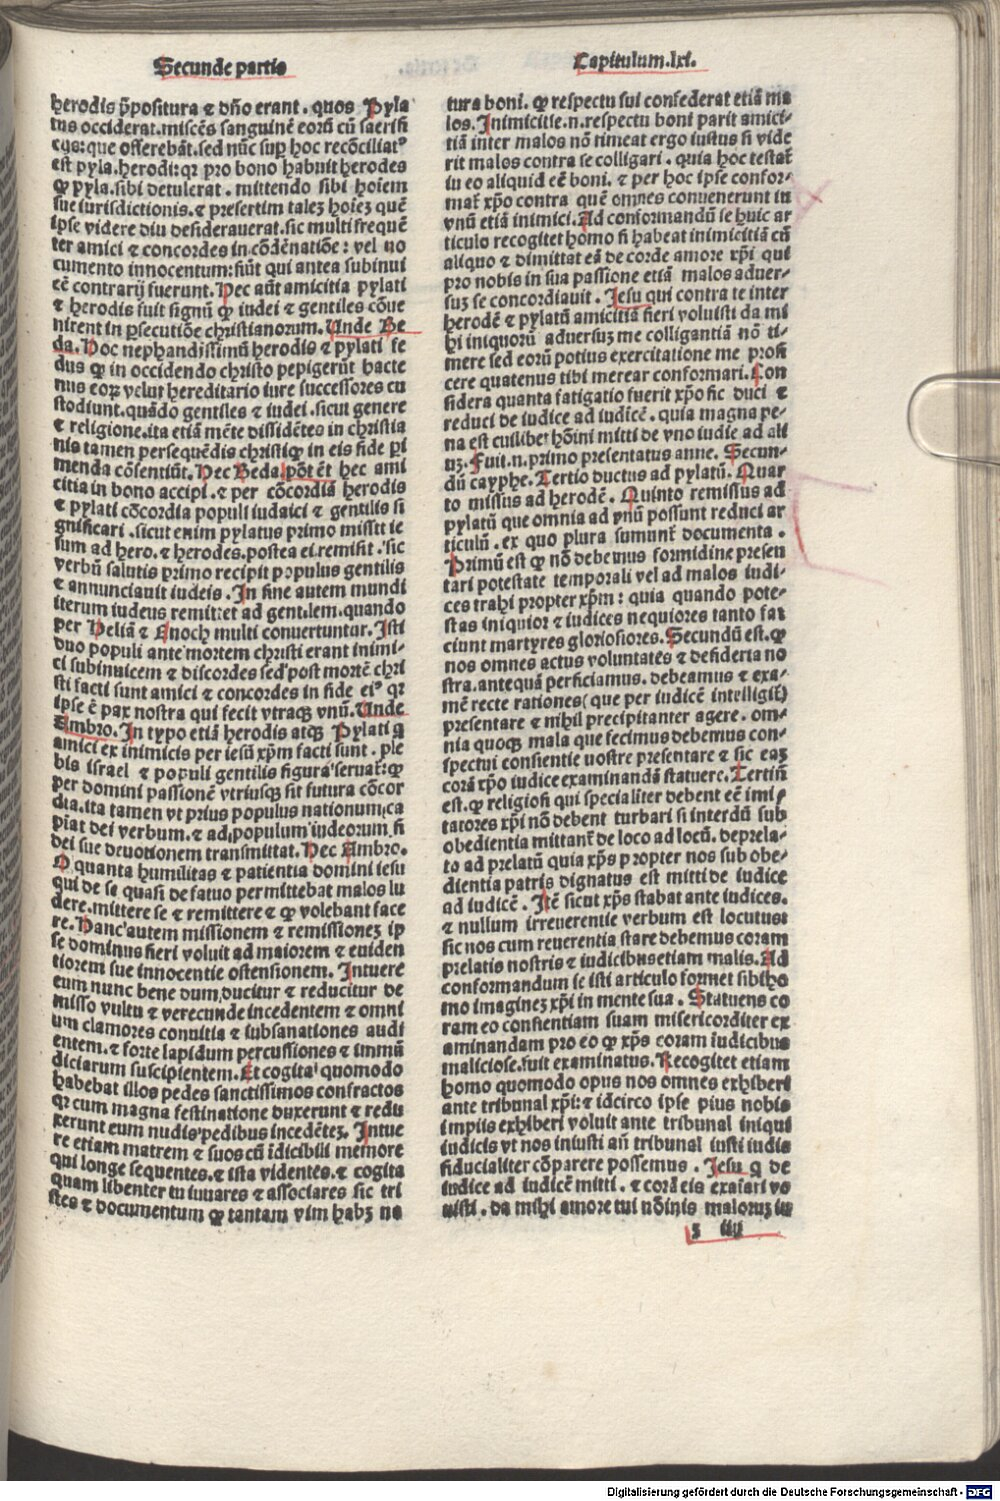 Secunde partis
Capitulum.lxi.
herodis p̄positura ⁊ dn̄o erant. quos Pyla
tus occiderat.miscēs sanguinē eorū cū sacrifi
cijs: que offerebāt.sed nūc suꝑ hoc recōciliatꝰ
est pyla.herodi: qꝛ pro bono habuit herodes
ꝙ pyla.sibi detulerat. mittendo sibi hoīem
sue iurisdictionis.⁊ presertim taleꝫ hoīeꝫ quē
ipse videre diu desiderauerat.sic multi frequē
ter amici ⁊ concordes in cōdēnatiōe: vel no
cumento innocentum: fiūt qui antea subinui
cē contrarij fuerunt. Hec aūt amicitia pylati
⁊ herodis fuit signū ꝙ iudei ⁊ gentiles cōue
nirent in ꝑsecutiōe christianorum. Unde Be
da. Hoc nephandissimū herodis ⁊ pylati fe
dus ꝙ in occidendo christo pepigerūt hacte
nus eoꝝ velut hereditario iure successores cu
stodiunt.quādo gentiles ⁊ iudei.sicut genere
⁊ religione.ita etiā mēte dissidētes in christia
nis tamen persequēdis christiqꝫ in eis fide ꝑi
menda cōsentiūt. Hec Beda. pōt ēt hec ami
citia in bono accipi.⁊ per cōcordiā herodis
⁊ pylati cōcordia populi iudaici ⁊ gentilis si
gnificari. sicut enim pylatus primo misit ie
sum ad hero.⁊ herodes.postea ei remisit. sic
verbū salutis primo recipit populus gentilis
⁊ annunciauit iudeis. In fine autem mundi
iterum iudeus remittet ad gentilem.quando
per Heliā ⁊ Enoch multi conuertuntur. Isti
duo populi ante mortem christi erant inimi-
ci subinuicem ⁊ discordes sed post mortē chri
sti facti sunt amici ⁊ concordes in fide eiꝰ qꝛ
ipse ē pax nostra qui fecit vtraqꝫ vnū. Unde
Ambro. In typo etiā herodis atqꝫ Pylati q̄
amici ex inimicis per iesū xp̄m facti sunt. ple
bis israel ⁊ populi gentilis figura seruat̄: ꝙ
per domini passionē vtriusqꝫ sit futura cōcor
dia.ita tamen vt prius populus nationum ca
piat dei verbum.⁊ ad populum iudeorum fi
dei sue deuotionem transmittat. Hec Ambro.
O quanta humilitas ⁊ patientia domini iesu
qui de se quasi de fatuo permittebat malos lu
dere.mittere se ⁊ remittere ⁊ ꝙ volebant face
re. Hanc autem missionem ⁊ remissioneꝫ ip
se dominus fieri voluit ad maiorem ⁊ euiden
tiorem sue innocentie ostensionem. Intuere
eum nunc bene dum ducitur ⁊ reducitur de
misso vultu ⁊ verecunde incedentem ⁊ omni
um clamores conuitia ⁊ subsanationes audi
entem.⁊ forte lapidum percussiones ⁊ immū
diciarum suscipientem. Et cogita quomodo
habebat illos pedes sanctissimos confractos
qꝛ cum magna festinatione duxerunt ⁊ redu
xerunt eum nudis pedibus incedēteꝫ. Intue
re etiam matrem ⁊ suos cū īdicibili memore
qui longe sequentes.⁊ ista videntes.⁊ cogita
quam libenter tu iuuares ⁊ associares sic tri
stes ⁊ documentum ꝙ tantam vim habꝫ na
tura boni. ꝙ respectu sui confederat etiā ma
los. Inimicitie.n.respectu boni parit amici-
tiā inter malos nō timeat ergo iustus si vide
rit malos contra se colligari. quia hoc testat̄
in eo aliquid eē boni. ⁊ per hoc ipse confor-
mat̄ xp̄o contra quē omnes conuenerunt in
vnū etiā inimici. Ad conformandū se huic ar
ticulo recogitet homo si habeat inimicitiā cū
aliquo ⁊ dimittat eā de corde amore xp̄i qui
pro nobis in sua passione etiā malos aduer-
suꝫ se concordiauit. Iesu qui contra te inter
herodē ⁊ pylatū amicitiā fieri voluisti da mi
hi iniquorū aduersuꝫ me colligantiā nō ti-
mere sed eorū potius exercitatione me profi
cere quatenus tibi merear conformari. Con
sidera quanta fatigatio fuerit xp̄o sic duci ⁊
reduci de iudice ad iudicē. quia magna pe-
na est cuilibet hōini mitti de vno iudie ad ali
uꝫ. Fuit.n.primo presentatus anne. Secun-
dū cayphe. Tertio ductus ad pylatū. Quar
to missus ad herodē. Quinto remissus ad
pylatū que omnia ad vnū possunt reduci ar
ticulū. ex quo plura sumunt̄ documenta.
Primū est ꝙ nō debemus formidine presen
tari potestate temporali vel ad malos iudi-
ces trahi propter xp̄m: quia quando pote-
stas iniquior ⁊ iudices nequiores tanto fac
ciunt martyres gloriosiores. Secundū est.ꝙ
nos omnes actus voluntates ⁊ desideria no
stra.antequā perficiamus. debeamus ⁊ exa-
mē recte rationes (que per iudicē intelligit̄)
presentare ⁊ nihil precipitanter agere. om-
nia quoqꝫ mala que fecimus debemus con-
spectui consientie nostre presentare ⁊ sic eaꝫ
corā xp̄o iudice examinandā statuere. Tertiū
est.ꝙ religiosi qui specialiter debent eē imi-
tatores xp̄i nō debent turbari si interdū sub
obedientia mittant̄ de loco ad locū. de prela-
to ad prelatū quia xp̄s propter nos sub obe-
dientia patris dignatus est mitti de iudice
ad iudicē. Itē sicut xp̄s stabat ante iudices.
⁊ nullum irreuerentie verbum est locutus:
sic nos cum reuerentia stare debemus coram
prelatis nostris ⁊ iudicibus etiam malis. Ad
conformandum se isti articulo formet sibi ho
mo imagineꝫ xp̄i in mente sua. Statuens co
ram eo consientiam suam misericorditer ex
aminandam pro eo ꝙ xp̄s coram iudicibus
maliciose.fuit examinatus. Recogitet etiam
homo quomodo opus nos omnes exhiberi
ante tribunal xp̄i: ⁊ idcirco ipse pius nobis
impiis exhiberi voluit ante tribunal iniqui
iudicis vt nos iniusti an̄ tribunal iusti iudis
fiducialiter cōparere possemus. Iesu q̄ de
iudice ad iudicē mitti. ⁊ corā eis exaīari vo
uisti. da mihi amore tui nōinis maloruꝫ iu
ꝫ iiij
Digitalisierung gefördert durch die Deutsche Forschungsgemeinschaft - DFG